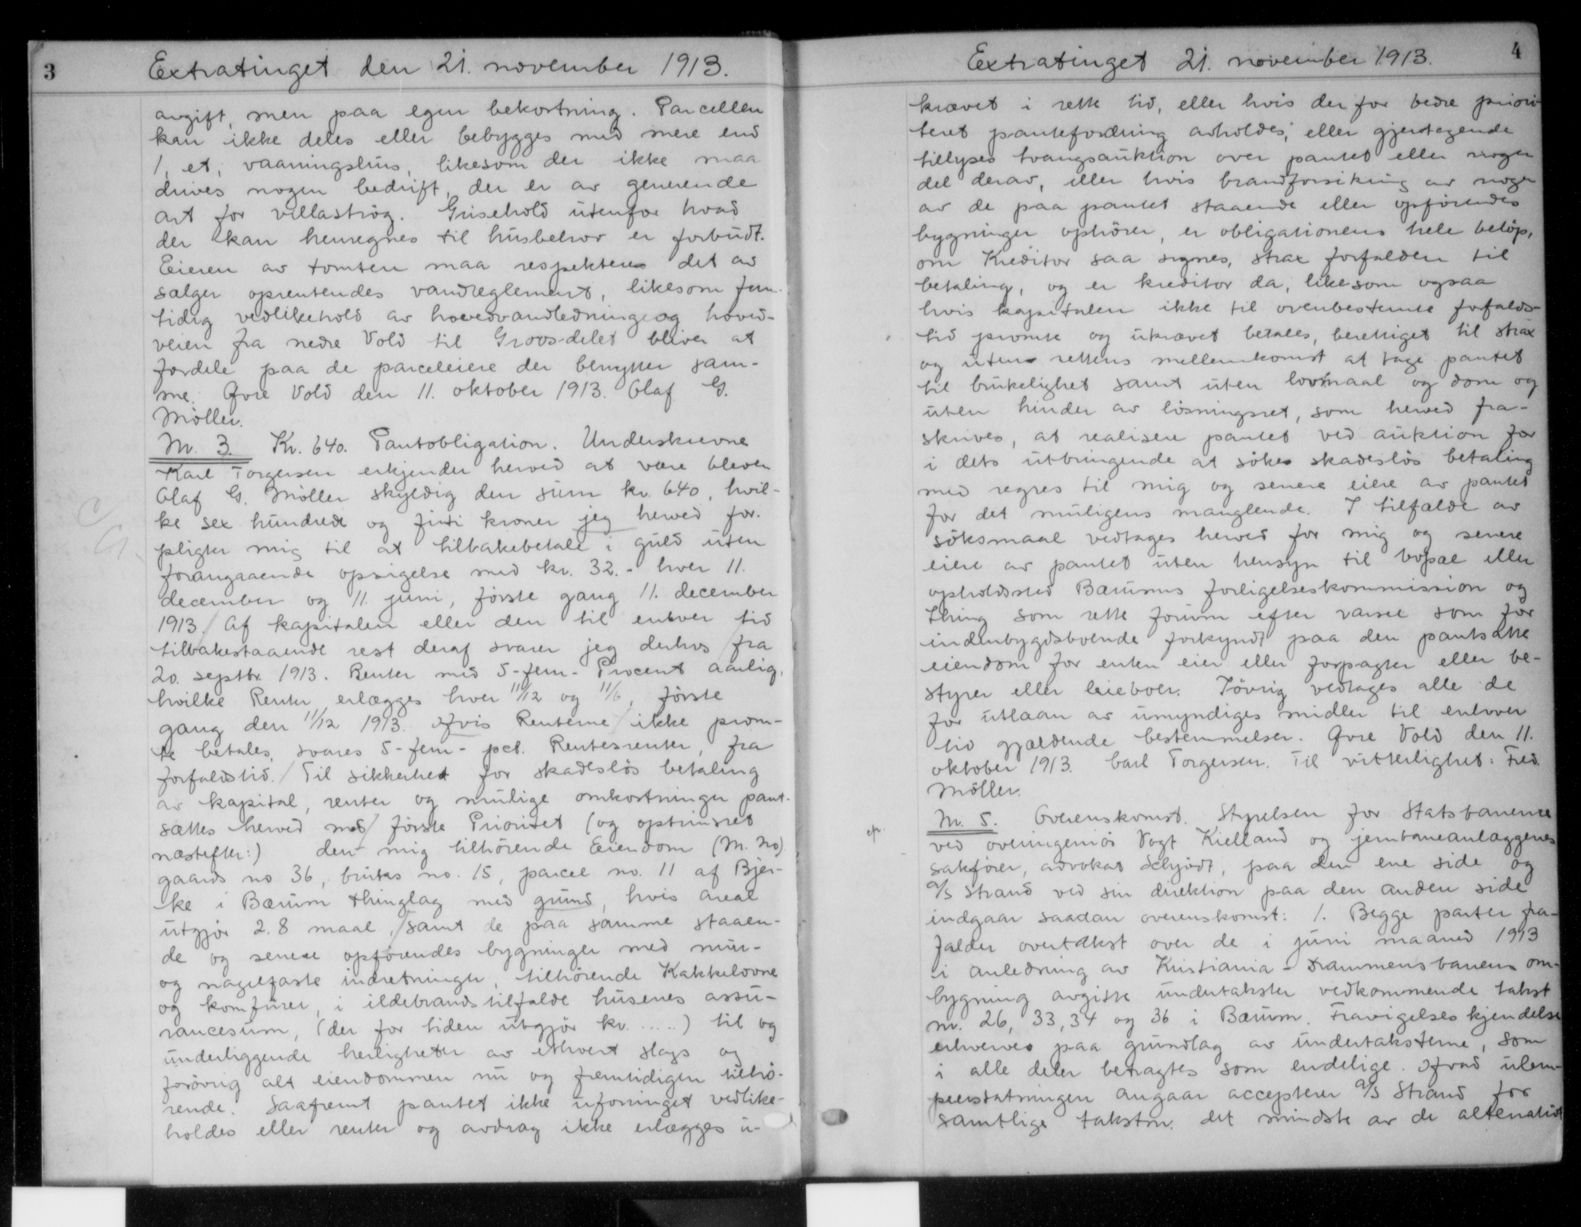 3
Extratinget den 21. november 1913.
avgift, men paa egen bekostning. Parcellen
kan ikke deles eller bebygges med mere end
1, et, vaaningshus, likesom der ikke maa
drives nogen bedrift, der er av generende
art for villastrøg. Grisehold utenfor hvad
der kan henregnes til husbehov er forbudt.
Eieren av tomten maa respektere det av
sælger oprettendes vandreglement, likesom frem-
tidig vedlikehold av hovedvandledninge og hoved-
veien fra nedre Vold til Groos-delet bliver at
fordele paa de parceleiere der benytter sam-
me. Øvre Vold den 11. oktober 1913. Olaf G.
Möller.
M. 3. Kr. 640. Pantobligation. Underskrevne
Karl Torgersen erkjender herved at være bleven
Olaf G. Möller skyldig den sum kr. 640, hvil-
ke sex hundrede og firti kroner jeg herved for-
pligter mig til at tilbakebetale i guld uten
forangaaende opsigelse med kr. 32.- hver 11.
december og 11. juni, første gang 11. december
1913. Af kapitalen eller den til enhver tid
tilbakestaaende rest deraf svarer jeg derhos fra
20. septbr. 1913. Renter med 5-fem- Procent aarlig,
hvilke Renter erlægges hver 11/12 og 11/6, første
gang den 11/12 1913. Hvis Renterne ikke prom-
te betales, svares 5-fem- pct. Rentesrenter, fra
forfaldstid. Til sikkerhet for skadesløs betaling
av kapital, renter og mulige omkostninger pant-
sættes herved med første Prioritet (og optrinsret
næstefter:) den mig tilhørende Eiendom (M. No)
gaards no 36, bruks no. 15, parcel no. 11 af Bjer-
ke i Bærum thinglag med grund, hvis areal
utgjør 2.8 maal, samt de paa samme staaen-
de og senere opførendes bygninger med mur-
og nagelfaste indretninger, tilhørende Kakkelovne
og komfurer, i ildebrandstilfælde husenes assu-
rancesum, (der for tiden utgjør kr. .....) til og
underliggende herligheter av ethvert slags og
forøvrig alt eiendommen nu og fremtidigen tilhø-
rende. Saafremt pantet ikke uforringet vedlike-
holdes eller renter og avdrag ikke erlægges u-
4
Extratinget 21. november 1913.
krævet i rette tid, eller hvis der for bedre priori-
teret pantefordring avholdes, eller gjentagende
tillyses tvangsauktion over pantet eller nogen
del derav, eller hvis brandforsikring av nogen
av de paa pantet staaende eller opførendes
bygninger ophører, er obligationens hele beløp,
om Kreditor saa synes, strax forfalden til
betaling, og er kreditor da, likesom ogsaa
hvis kapitalen ikke til ovenbestemte forfalds-
tid promte og ukrævet betales, berettiget til strax
og uten rettens mellemkomst at tage pantet
til brukelighet samt uten lovmaal og dom og
uten hinder av løsningsret, som herved fra-
skrives, at realisere pantet ved auktion for
i dets utbringende at søke skadesløs betaling
med regres til mig og senere eiere av pantet
for det muligens manglende. I tilfælde av
søksmaal vedtages herved for mig og senere
eiere av pantet uten hensyn til bopæl eller
opholdssted Bærums forligelseskommission og
Thing som rette forum efter varsel som for
indenbygdsboende forkyndt paa den pantsatte
eiendom for enten eier eller forpagter eller be-
styrer eller leieboer. Iøvrig vedtages alle de
for utlaan av umyndiges midler til enhver
tid gjældende bestemmelser. Øvre Vold den 11.
oktober 1913. Carl Torgersen. Til vitterlighet: Fred.
Möller.
M. 5. Overenskomst. Styrelsen for Statsbanerne
ved overingeniør Vogt Kielland og jernbaneanlæggenes
sakfører, advokat Schjødt, paa den ene side og
A/S Strand ved sin direktion paa den anden side
indgaar saadan overenskomst: 1. Begge parter fra-
falder overtakst over de i juni maaned 1913
i anledning av Kristiania - Drammensbanens om-
bygning avgitte undertakster vedkommende takst
nr. 26, 33, 34 og 36 i Bærum. Fravigelseskjendelse
erhverves paa grundlag av undertaksterne, som
i alle deler betragtes som endelige. Hvad ulem-
peerstatningen angaar accepterer A/S Strand for
samtlige takstnr. det mindste av de alternativt